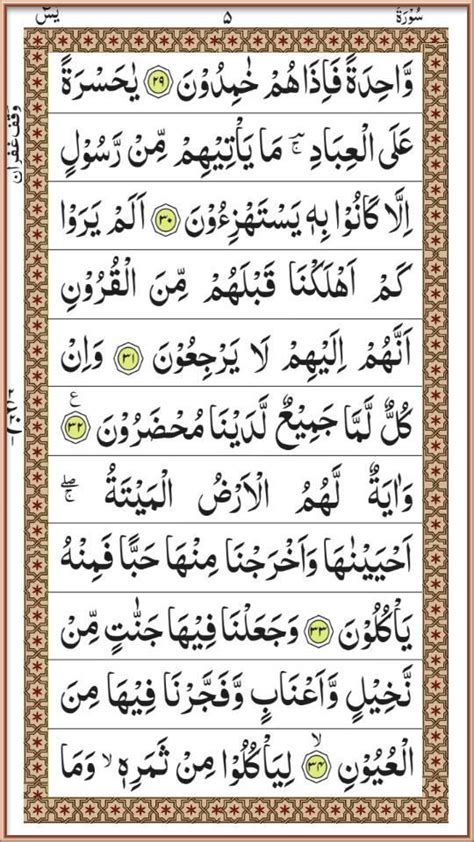 سُوْرَةُ ۵ يٰسٓ
وَّاحِدَةً فَاِذَا هُمْ خٰمِدُوْنَ ﴿۲۹﴾ يٰحَسْرَةً
عَلَى الْعِبَادِ ۣۚ مَا يَاْتِيْهِمْ مِّنْ رَّسُوْلٍ
اِلَّا كَانُوْا بِهٖ يَسْتَهْزِءُوْنَ ﴿۳۰﴾ اَلَمْ يَرَوْا
كَمْ اَهْلَكْنَا قَبْلَهُمْ مِّنَ الْقُرُوْنِ
اَنَّهُمْ اِلَيْهِمْ لَا يَرْجِعُوْنَ ﴿۳۱﴾ وَاِنْ
كُلٌّ لَّمَّا جَمِيْعٌ لَّدَيْنَا مُحْضَرُوْنَ ﴿۳۲﴾ ع
وَاٰيَةٌ لَّهُمُ الْاَرْضُ الْمَيْتَةُ ۖۚ
اَحْيَيْنٰهَا وَاَخْرَجْنَا مِنْهَا حَبًّا فَمِنْهُ
يَاْكُلُوْنَ ﴿۳۳﴾ وَجَعَلْنَا فِيْهَا جَنّٰتٍ مِّنْ
نَّخِيْلٍ وَّاَعْنَابٍ وَّفَجَّرْنَا فِيْهَا مِنَ
الْعُيُوْنِ ۙ﴿۳۴﴾ لِيَاْكُلُوْا مِنْ ثَمَرِهٖ ۙ وَمَا
وقف غفران